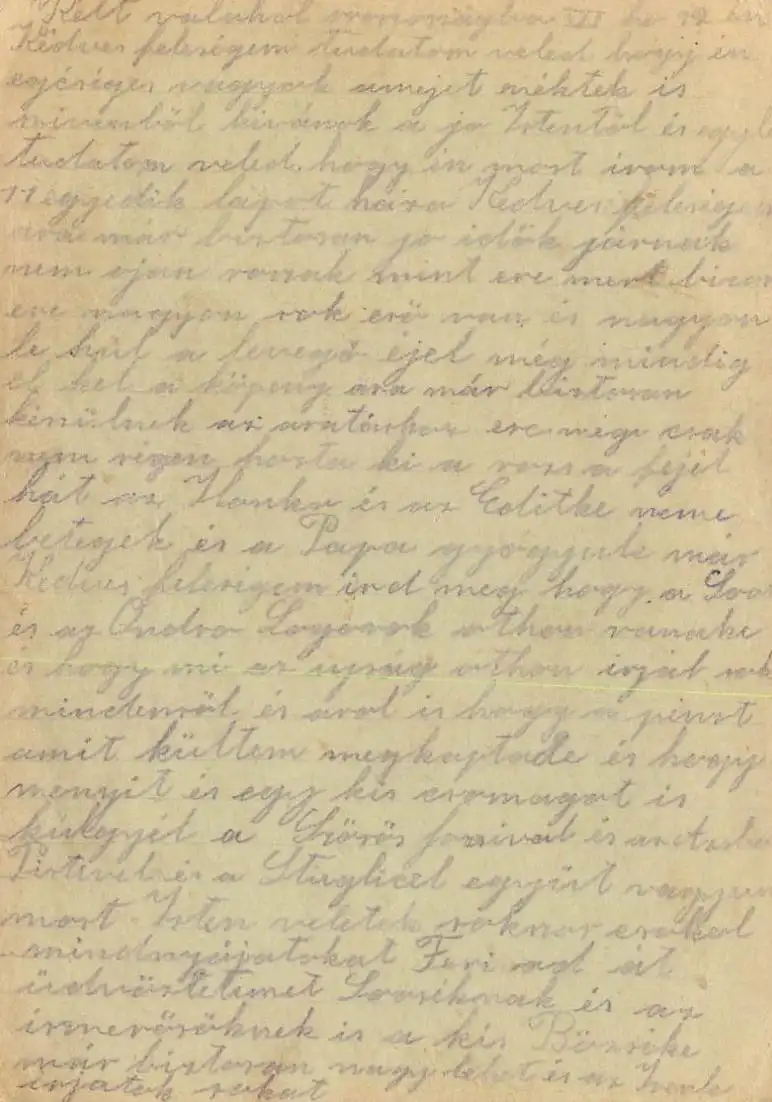 Kelt valahol oroszországba VII ho 12 én
Kedves feleségem tudatom veled hogy én
egéséges vagyok amejet néktek is
mivenből kivánok a jo Istentöl és egyb
tudatom veled hogy én most irom a
11 egyedik lapot háza Kedves feleségem
ara már biztosan jo idök járnak
nem ojan roszak mint ere mert bizon
ere nagyon sok esö van és nagyon
le hül a levegö éjel még mindig
el kel a köpeny ara már biztosan
kézülnek az aratáshoz ere még csak
nem régen hozta ki a rozs a fejét
hát az Ilonka és az Editke neme
betegek és a Papa gyogyule már
Kedves feleségem ird meg hogy a Soo
és az Ondro Lagosok othon vanake
és hogy mi az ujság othon irjál
mindenröl és arol is hogy a pénzt
amit kültem megkaptade és hogy
menyit és egy kis csomagot is
külgyél a Szörös ferivel és
Pistivel és a Stuglicel együt vagyun
most Isten veletek sokszor csokol
mindnyájatokat Feri ad át
üdvözletemet Soosiknak és az
ismerösöknek is a kis Bözsike
már biztosan nagy lehet és az
irjatok sokat